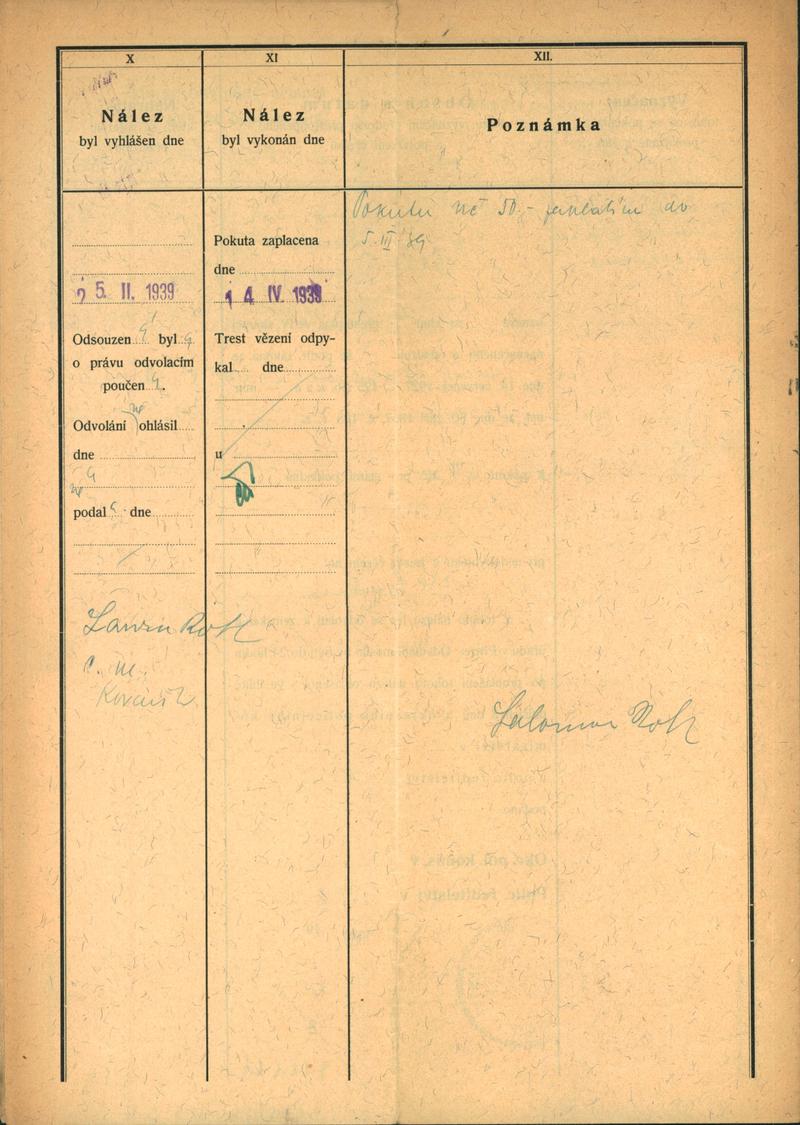 X
Nález
byl vyhlášen dne
25. II. 1939
Odsouzen byl
o právu odvolacím
poučen
Odvolání ohlásil
dne
podal dne
Roth
XI
Nález
byl vykonán dne
Pokuta zaplacena
dne
14 IV. 1939
Trest vězení odpy-
kal dne
u
XII.
Poznámka
Pokutu Kč 50.- zaplatím do
5. III. 39
Salomon Roth